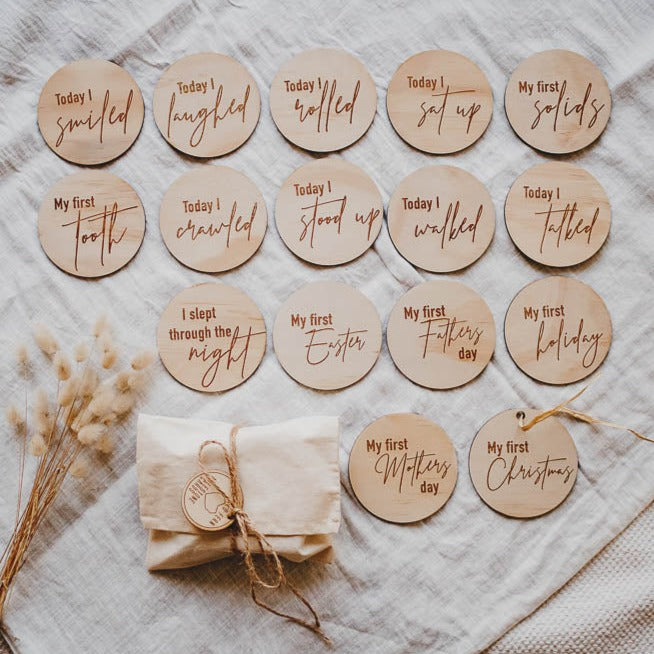 Today I
smiled
Today I
laughed
Today I
rolled
Today I
sat up
My first
solids
My first
tooth
Today I
crawled
Today I
stood up
Today I
walked
Today I
talked
I slept
through the
night
My first
Easter
My first
Fathers
day
My first
holiday
My first
Mothers
day
My first
Christmas